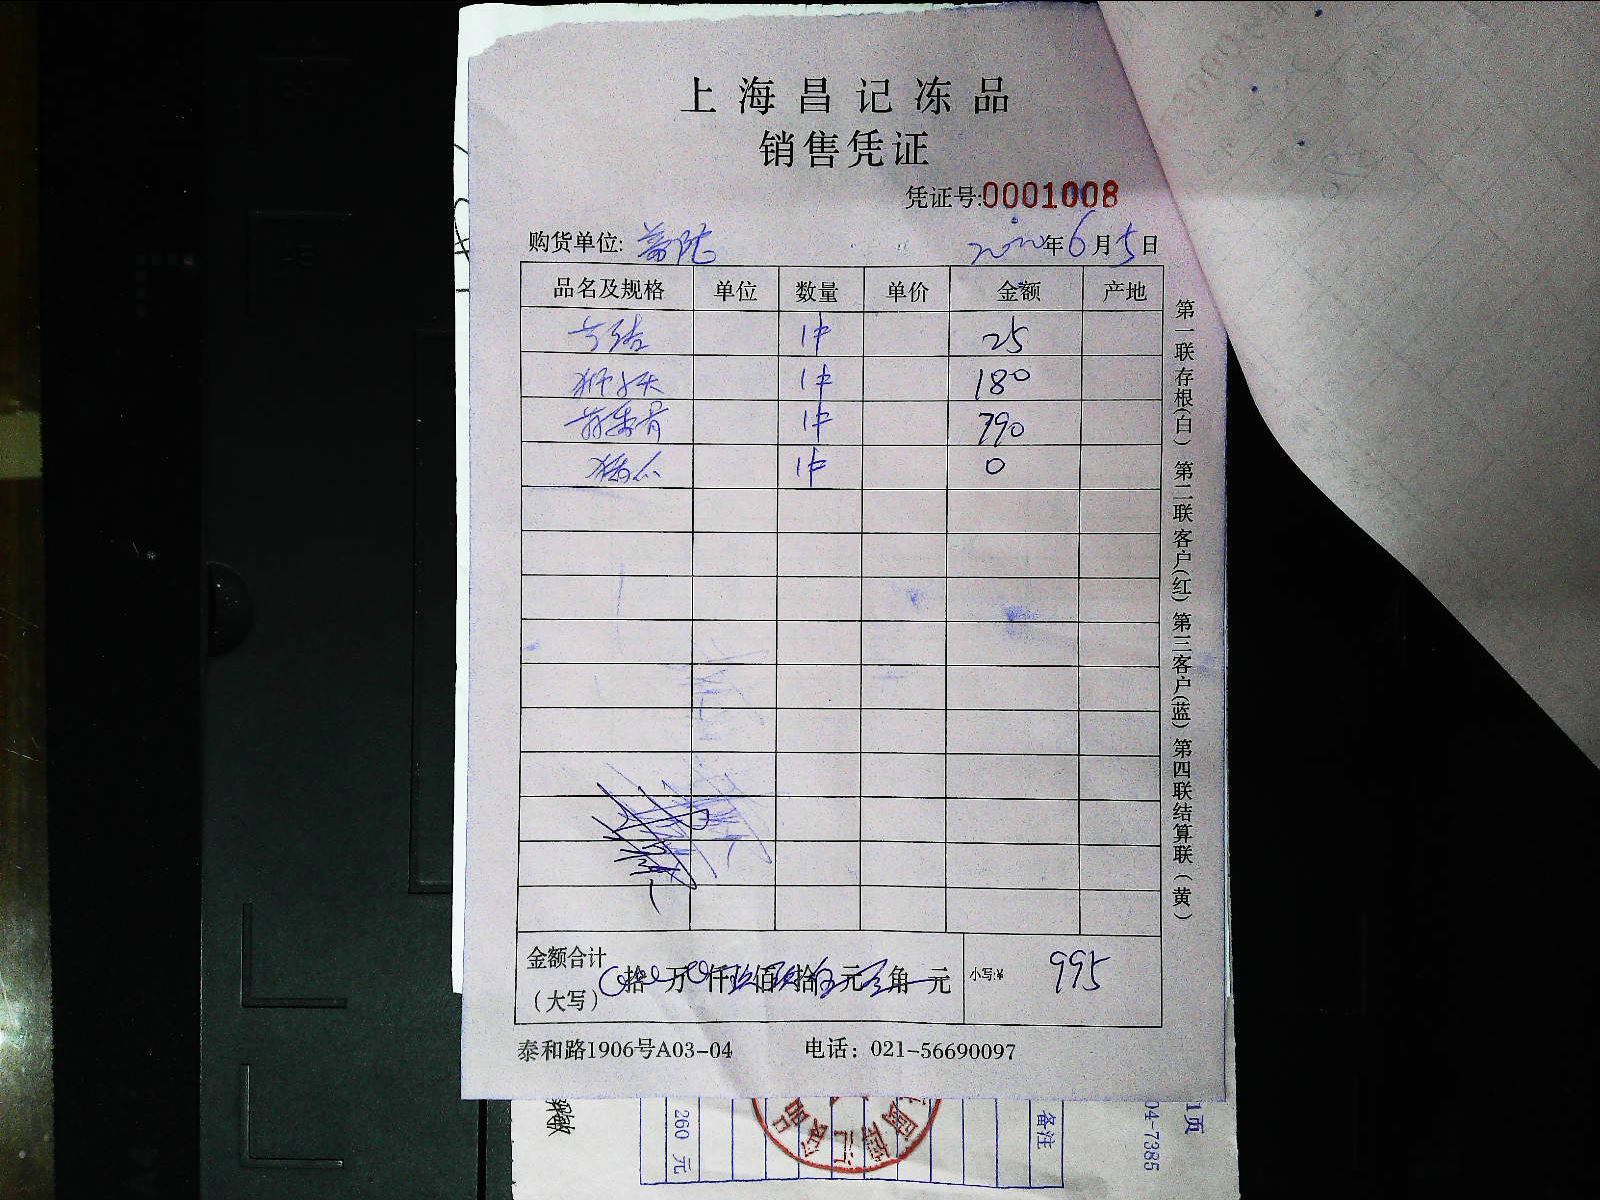 上海昌记冻品
销售凭证
凭证号:0001008
购货单位:
2020年6月5日
品名及规格 单位 数量 单价 金额 产地
1件 25
狮子头 1件 180
1件 790
1件 0
金额合计
(大写) 拾 万 仟玖佰玖拾伍元 角 元 小写:¥ 995
泰和路1906号A03-04 电话：021-56690097
第一联存根(白) 第二联客户(红) 第三客户(蓝) 第四联结算联(黄)
260 元
备注
04-7385
1页